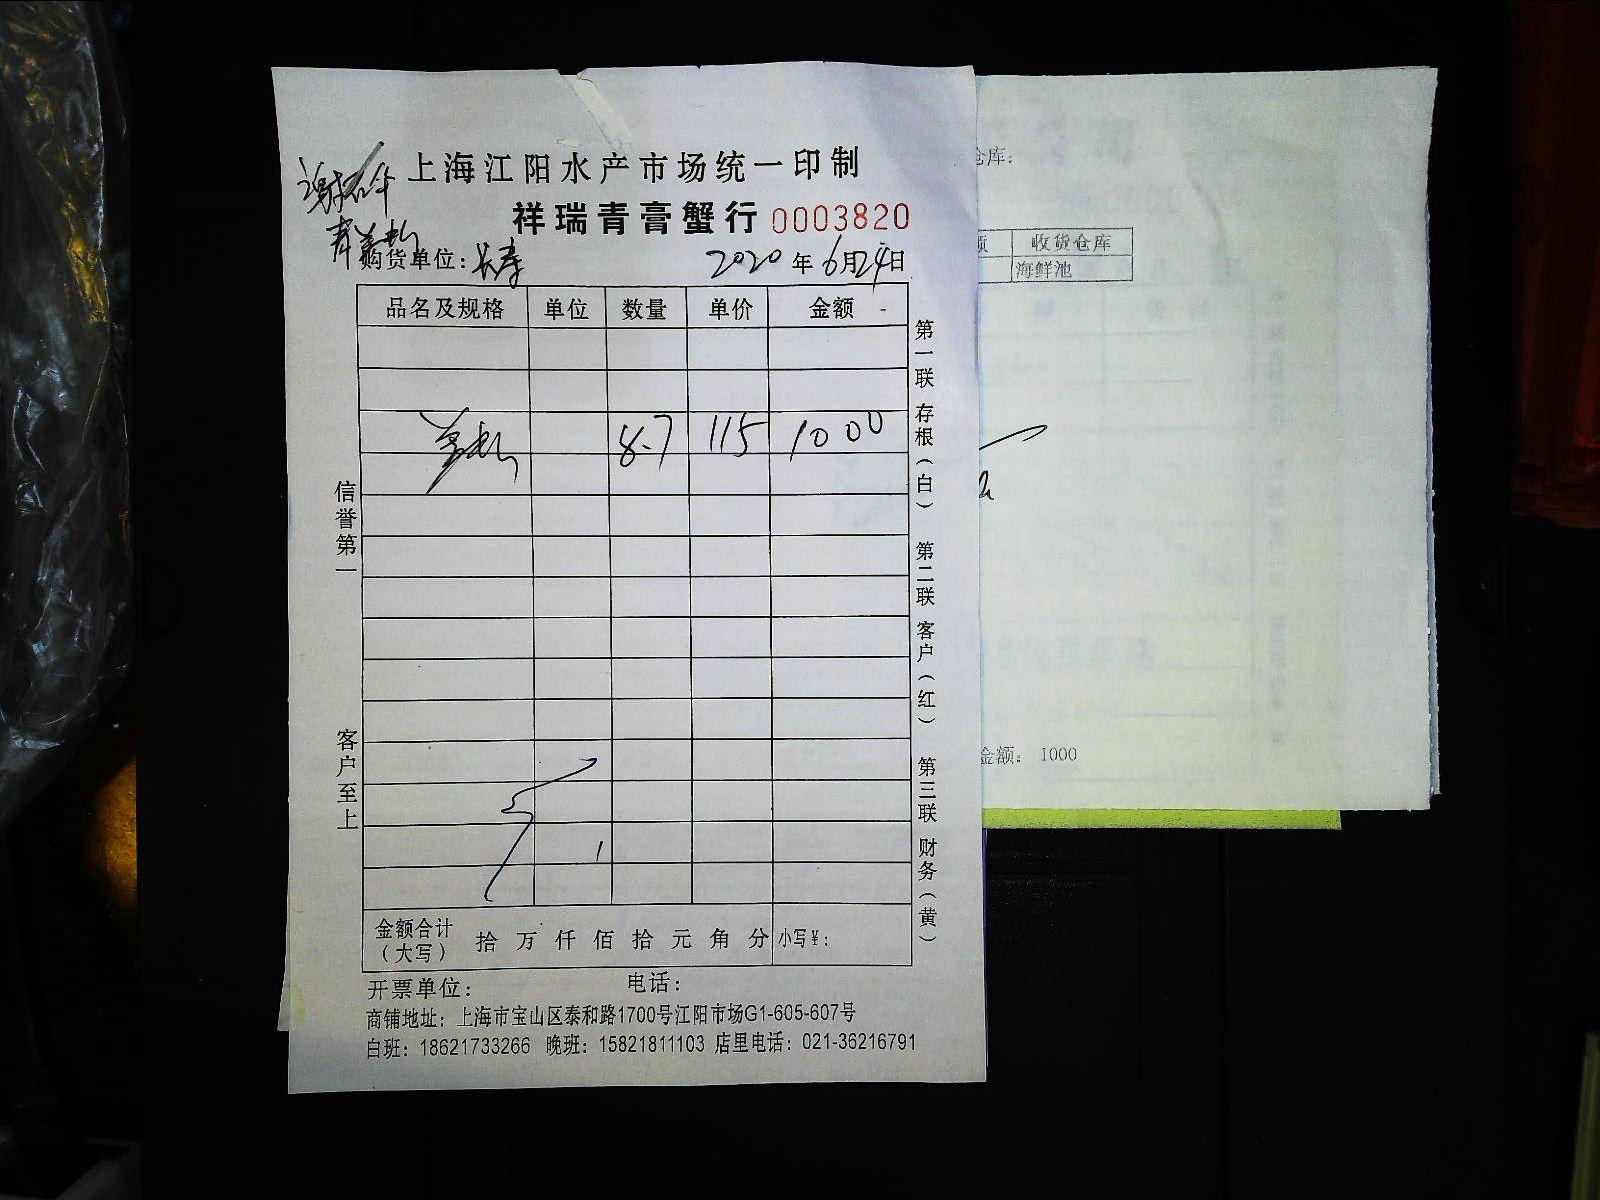 上海江阳水产市场统一印制
祥瑞青膏蟹行 0003820
购货单位：长寿 2020年6月24日
品名及规格 单位 数量 单价 金额
8.7 115 1000
信誉第一
客户至上
第一联 存根（白） 第二联 客户（红） 第三联 财务（黄）
金额合计（大写） 拾 万 仟 佰 拾 元 角 分 小写¥：
开票单位： 电话：
商铺地址：上海市宝山区泰和路1700号江阳市场G1-605-607号
白班：18621733266 晚班：15821811103 店里电话：021-36216791
仓库：
收货仓库
海鲜池
金额： 1000